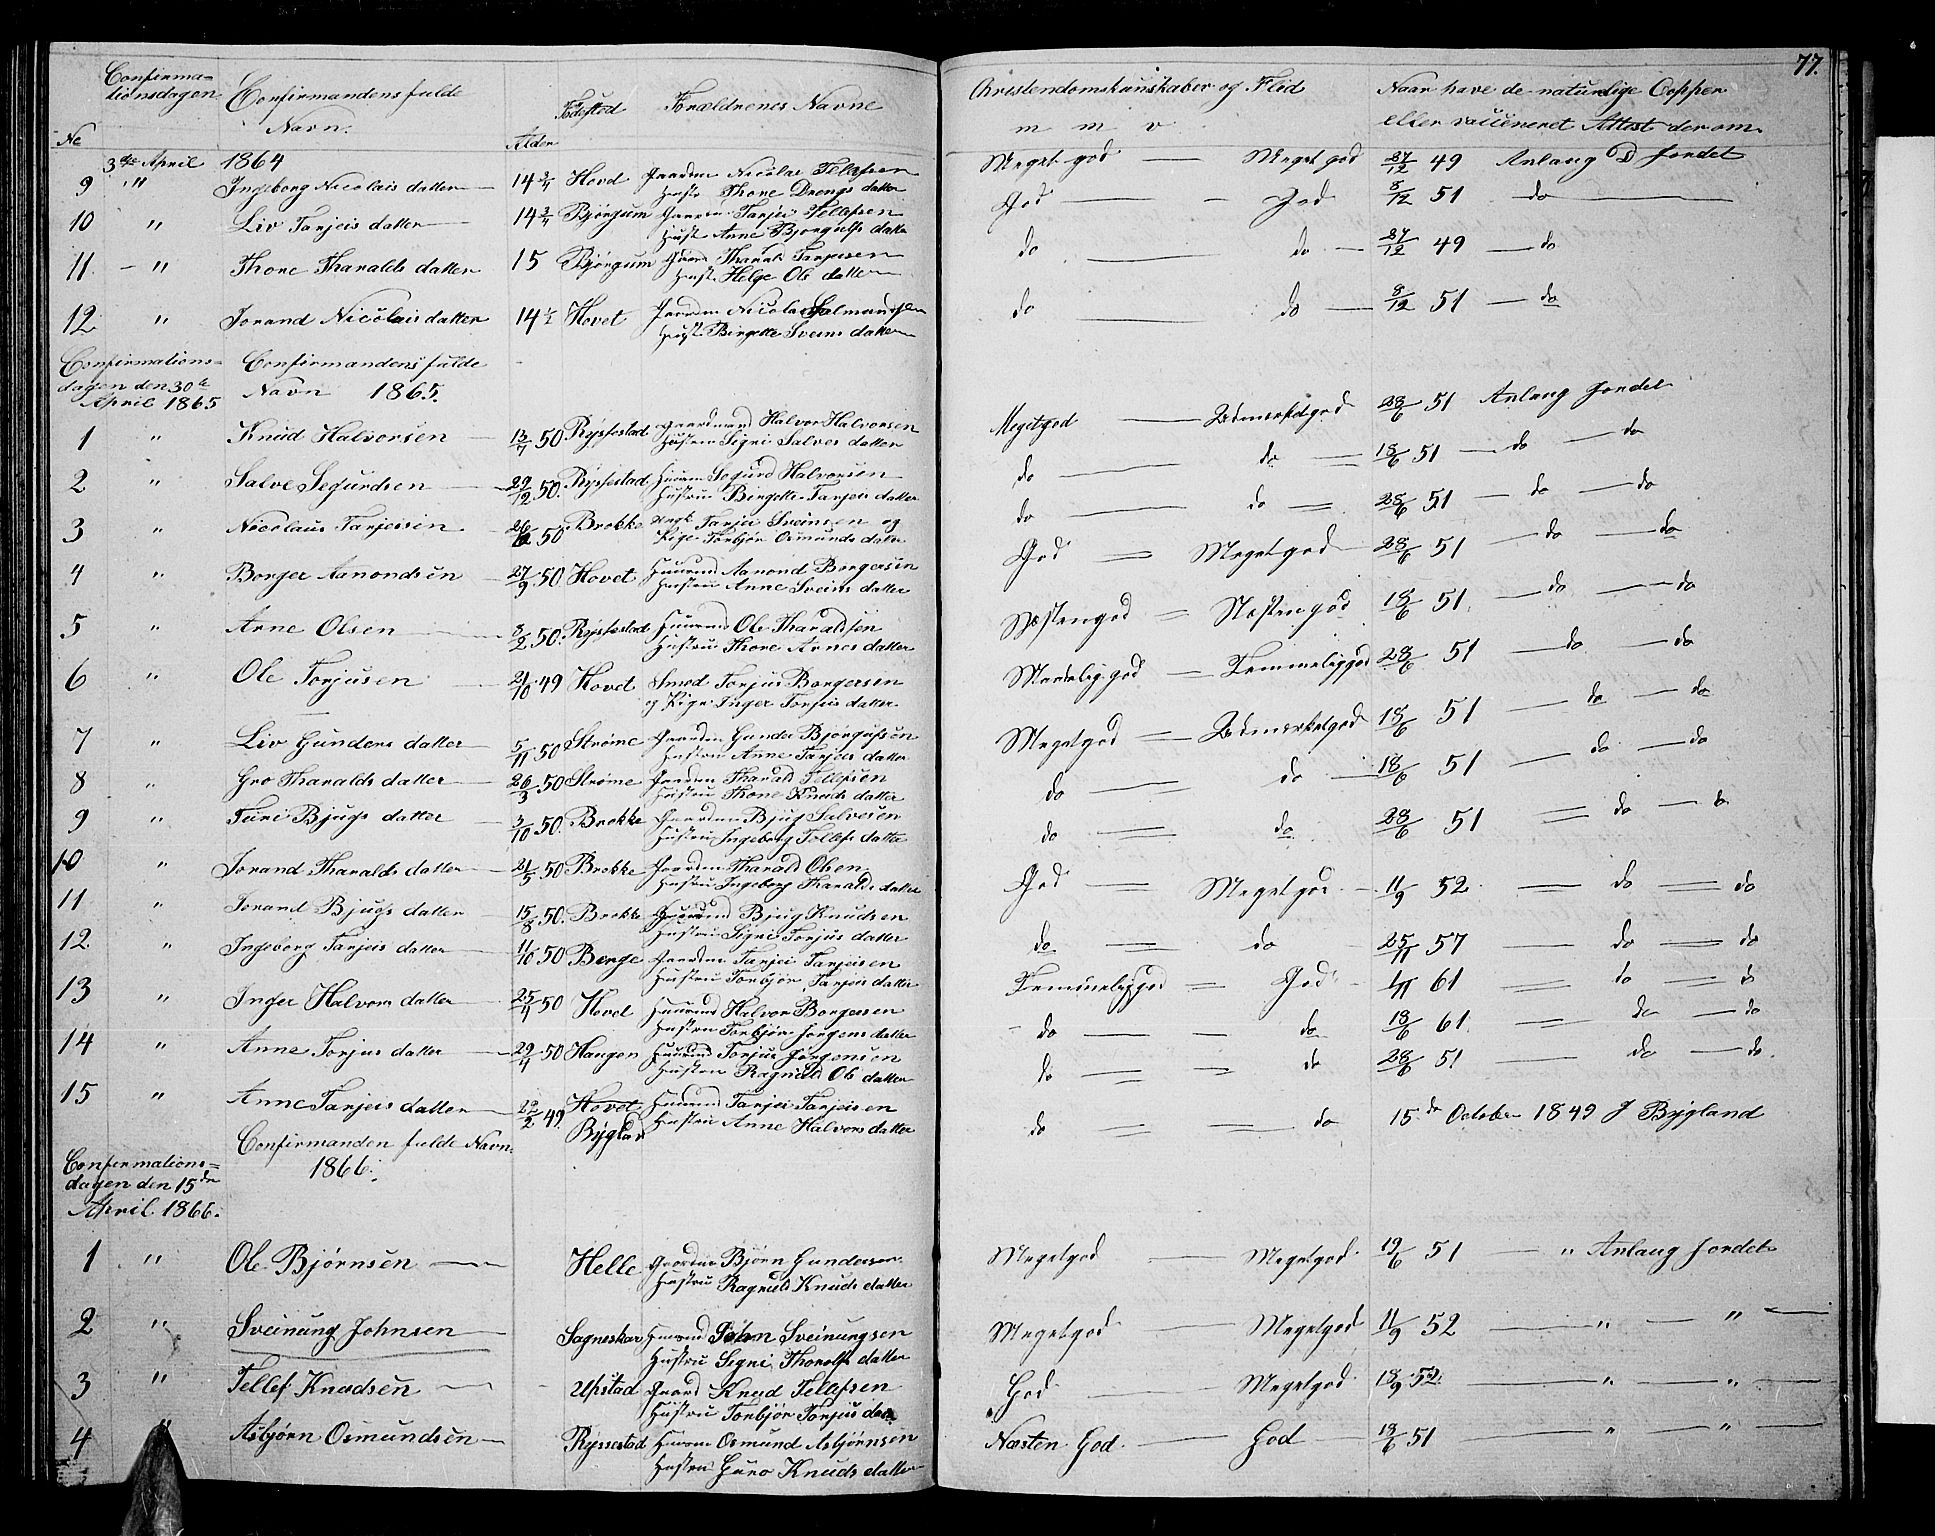 77.
Confirma=
tionsdagen
Confirmandens fulde
Navn.
No
Alder
Fødested
Forældrenes Navne
Christendomskunskaber og Flid
m m v
Naar have de naturlige Copper
eller vaccineret Attest derom
3die April 1864
9 " Ingeborg Nicolais datter 14 3/4 Hovd Gaardm Nicolai Tellefsen
Hustr Thone Drengs datter
Meget god — Meget god 27/12 49 Anlaug D Jordet
10 " Liv Tarjeis datter 14 3/4 Bjørgum Gaardm Tarjei Tellefsen
Hustr Anne Bjorgulfs datter
God — God 8/12 51 do
11 — " Thore Tharalds datter 15 Bjørgum Gaard Tharald Tarjeisen
Hust. Helge Ols datter
do — do — 27/12 49 — do
12 " Jorand Nicolais datter 14 1/2 Hovet Gaardm Nicolai Salmundsen
Hust Birgette Sveins datter
do — do — 8/12 51 — do
Confirmations-
dagen den 30te
April 1865
Confirmandens fulde
Navn 1865.
1 " Knud Halvorsen 13/7 50 Ryssestad Gaardmand Halvor Halvorsen
Hustru Signi Salves datter
Megetgod — Udmerketgod 28/6 51 Anlaug Jordet
2 " Salve Segurdsen 29/12 50. Ryssestad Huusm Segurd Halvorsen
Hustru Birgette Tarjeis datter
do — do = 18/6 51 — do — do
3 " Nicolaus Tarjeisen 26/6 50 Brokke Ungk Tarjei Sveinsen og
Pige Torbjør Osmunds datter
do — do = 28/6 51 — do — do
4 " Borger Aamondsen 27/9 50 Hovet Huusmd Aamond Borgersen
Hustru Anne Sveins datter
God = Megetgod 28/6 51 — do — do
5 " Arne Olsen 8/2 50. Ryssestad Huusmd Ole Tharaldsen
Hustru Thore Arnes datter
Næstengod = Næstengod 18/6 51. — do — do
6 " Ole Torjusen 21/10 49 Hovet Smed Torjus Borgersen
og Pige Inger Torjus datter
Maadeliggod — Temmeliggod 28/6 51 — do — do
7 " Liv Gundens datter 5/11 50 Strøme Gaardm Gunder Bjørgufsen
Hustru Anne Tarjeis datter
Megetgod = Udmerketgod 18/6 51 — do — do
8 " Gro Tharalds datter 26/3 50 Strøme Gaardm Tharald Tellefsen
Hustru Thone Knuds datter
do — do — 18/6 51 — do — do
9 " Turi Bjugs datter 3/10 50. Brokke Gaardm Bjug Salvesen
Hustru Ingeborg Tollefs datter
do = do 28/6 51 = do — do
10 " Jorand Tharalds datter 21/5 50 Brokke Gaardm Tharald Olsen
Hustru Ingeborg Tharalds datter
God = Megetgod — 11/9 52. = do = do
11 " Jorand Bjugs datter 15/8 50. Brokke Huusmd Bjug Knudsen
Hustru Signi Torjus datter
do = do 25/11 57 — do = do
12. " Ingeborg Tarjeis datter 11/10 50 Berge Gaardm Tarjei Tarjeisen
Hustru Torbjør Tarjeis datter
Temmeliggod = God 1/11 61 = do = do
13 " Inger Halvors datter 25/4 50 Hovet Huusmd Halvor Borgersen
Hustru Torbjør Jorgens datter
do — do 18/6 61. = do — do
14 " Anne Torjus datter 29/4 50 Haugen Huusmd Torjus Jorgensen
Hustru Ragnild Ols datter
do = do 28/6 51. — do — do.
15 " Anne Tarjeis datter 22/2 49. Hovet Huusmd Tarjei Tarjeisen
Bygland Hustru Anne Halvors datter
do = do 15de October 1849 J Bygland
Confirmanden fulde Navn
1866.
Confirmations=
dagen den 15de
April 1866.
1 " Ole Bjørnsen Helle Gaardm Bjørn Gundersen
Hustru Ragnild Knuds datter
Megetgod — Megetgod 19/6 51 — " Anlaug Jordet
2 " Sveinung Johnsen Sagneskar Huusmd John Sveinungsen
Hustru Signi Thorolfs datter
Megetgod — Megetgod 11/9 52 — " — "
3 " Tellef Knudsen Upstad Gaard Knud Tellefsen
Hustru Torbjør Torjus dat.
God — Megetgod 18/9 52. — " — "
4 " Asbjørn Osmundsen Ryssestad Huusm Osmund Asbjørnsen
Hustru Guro Knuds datter
Næsten God. — God 18/6 51 — " — "